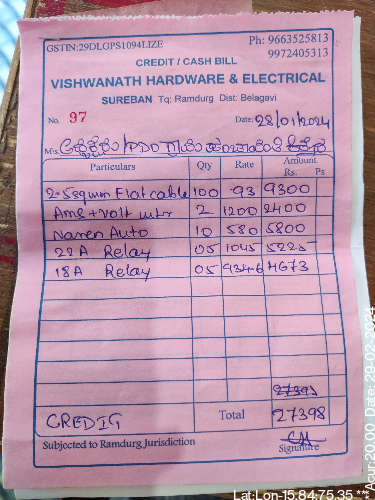 GSTIN:29DLGPS1094L1ZE Ph: 9663525813
9972405313
CREDIT / CASH BILL
VISHWANATH HARDWARE & ELECTRICAL
SUREBAN Tq: Ramdurg Dist: Belagavi
No. 97 Date: 28/01/2024
M/s. ಅಧ್ಯಕ್ಷರು/PDO ಗ್ರಾಮ ಪಂಚಾಯತಿ
Particulars Qty Rate Amount
Rs. Ps
2.5sqmm Flat cable 100 93 9300
Am + Volt mtr 2 1200 2400
Naren Auto 10 580 5800
22A Relay 05 1045 5225
18A Relay 05 934.6 4673
27398
CREDIT Total 27398
Subjected to Ramdurg Jurisdiction Signature
Lat:Lon-15.84:75.35 ***Acur:20.00 Date: 29-02-2024